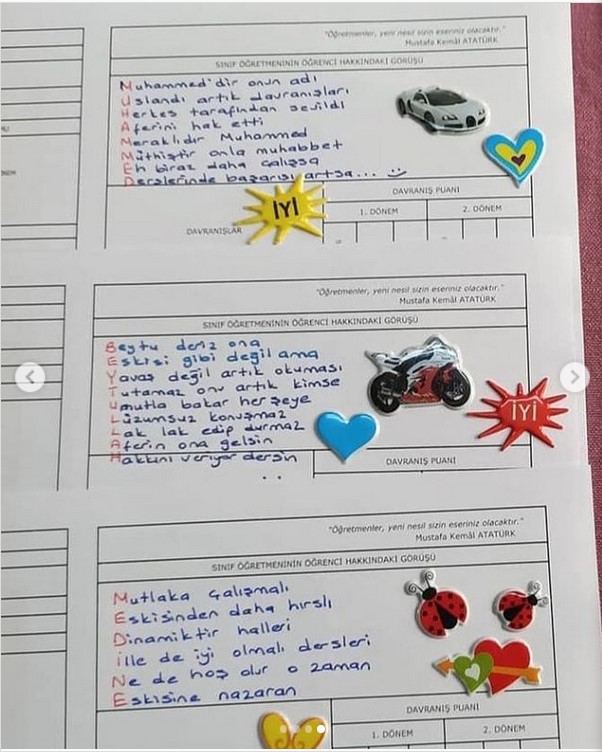 "Öğretmenler, yeni nesil sizin eseriniz olacaktır."
Mustafa Kemâl ATATÜRK
SINIF ÖĞRETMENİNİN ÖĞRENCİ HAKKINDAKİ GÖRÜŞÜ
Muhammed'dir onun adı
Uslandı artık davranışları
Herkes tarafından sevildi
Aferini hak etti
Meraklıdır Muhammed
Müthiştir onla muhabbet
Eh biraz daha çalışsa
Derslerinde başarısı artsa...
DAVRANIŞ PUANI
İYİ
1. DÖNEM
2. DÖNEM
DAVRANIŞLAR
"Öğretmenler, yeni nesil sizin eseriniz olacaktır."
Mustafa Kemâl ATATÜRK
SINIF ÖĞRETMENİNİN ÖĞRENCİ HAKKINDAKİ GÖRÜŞÜ
Beytu deriz ona
Eskisi gibi değil ama
Yavaş değil artık okuması
Tutamaz onu artık kimse
Umutla bakar her şeye
Lüzumsuz konuşmaz
Lak lak edip durmaz
Aferin ona gelsin
Hakkını veriyor dersin
İYİ
DAVRANIŞ PUANI
"Öğretmenler, yeni nesil sizin eseriniz olacaktır."
Mustafa Kemâl ATATÜRK
SINIF ÖĞRETMENİNİN ÖĞRENCİ HAKKINDAKİ GÖRÜŞÜ
Mutlaka çalışmalı
Eskisinden daha hırslı
Dinamiktir halleri
İlle de iyi olmalı dersleri
Ne de hoş olur o zaman
Eskisine nazaran
DAVRANIŞ PUANI
1. DÖNEM
2. DÖNEM